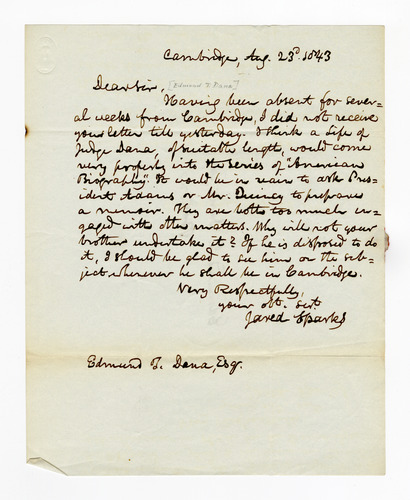 Cambridge, Aug. 23d 1843
Dear Sir, [Edmund T. Dana]
Having been absent for sever-
al weeks from Cambridge, I did not receive
your letter till yesterday. I think a life of
Judge Dana, of suitable length, would come
very properly into the series of "American
Biography". It would be in vain to ask Pres-
ident Adams or Mr. Quincy to prepare
a memoir. They are both too much en-
gaged with other matters. Why will not your
brother undertake it? If he is disposed to do
it, I should be glad to see him on the sub-
ject whenever he shall be in Cambridge.
Very Respectfully,
your obt. sert
Jared Sparks
Edmund T. Dana, Esq.